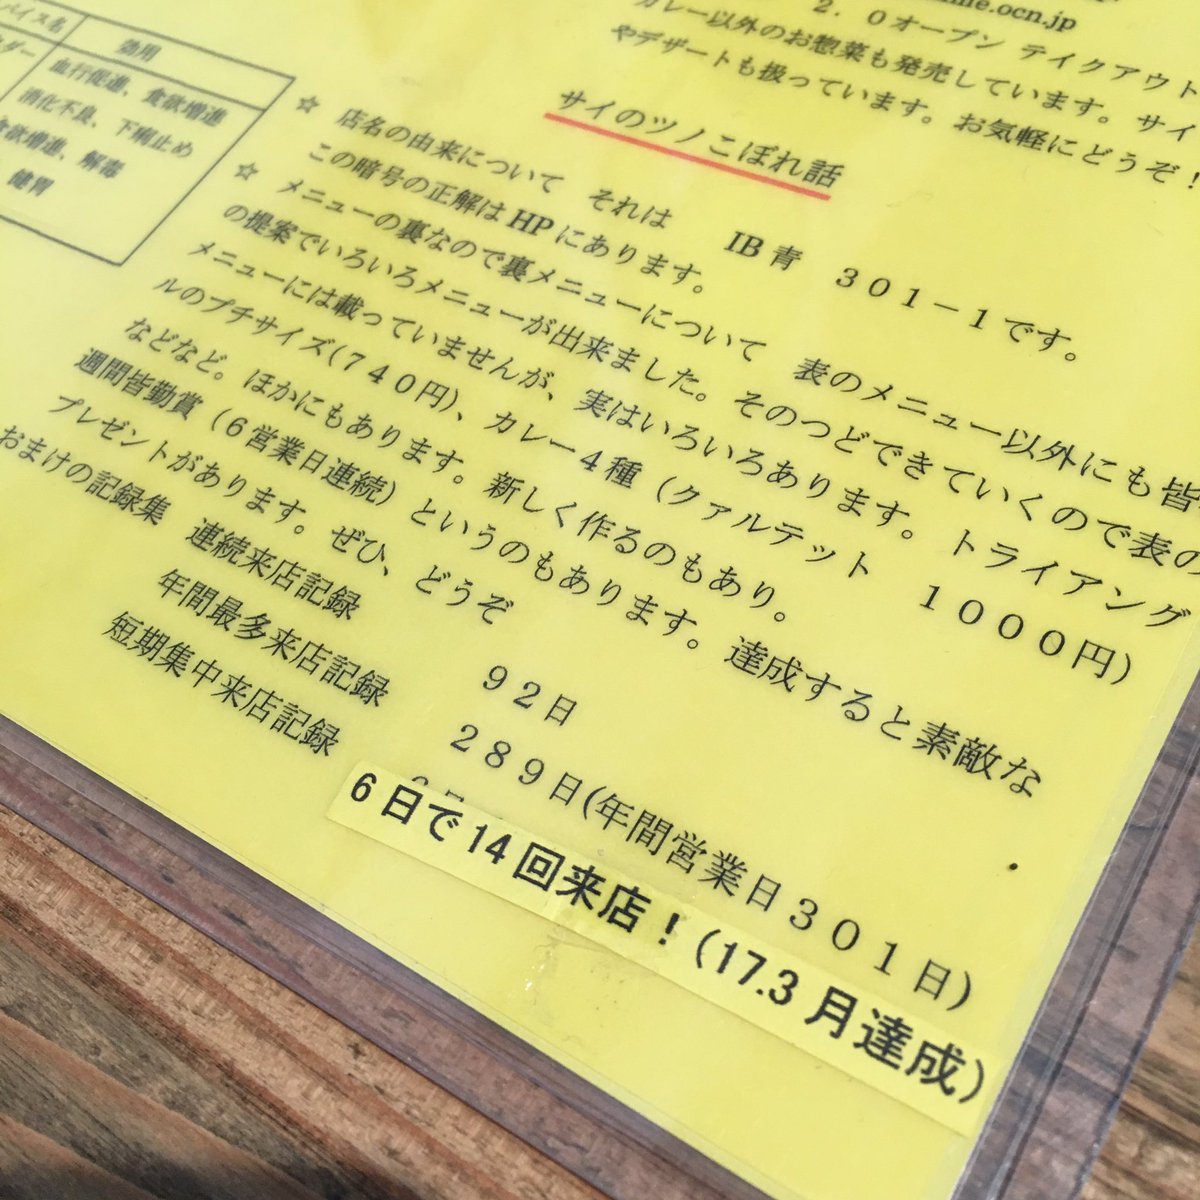 ocn.jp
2.0オープン テイクアウト
カレー以外のお惣菜も発売しています。サイ
やデザートも扱っています。お気軽にどうぞ！
効用
血行促進、食欲増進
消化不良、下痢止め
食欲増進、解毒
健胃
サイのツノこぼれ話
☆ 店名の由来について それは IB青 301－1です。
この暗号の正解はHPにあります。
☆ メニューの裏なので裏メニューについて 表のメニュー以外にも皆
の提案でいろいろメニューが出来ました。そのつどできていくので表の
メニューには載っていませんが、実はいろいろあります。トライアング
ルのプチサイズ(740円)、カレー4種（クァルテット 1000円）
などなど。ほかにもあります。新しく作るのもあり。
週間皆勤賞（6営業日連続）というのもあります。達成すると素敵な
プレゼントがあります。ぜひ、どうぞ
おまけの記録集 連続来店記録 92日
年間最多来店記録 289日(年間営業日301日)
短期集中来店記録
6日で14回来店！(17.3月達成)